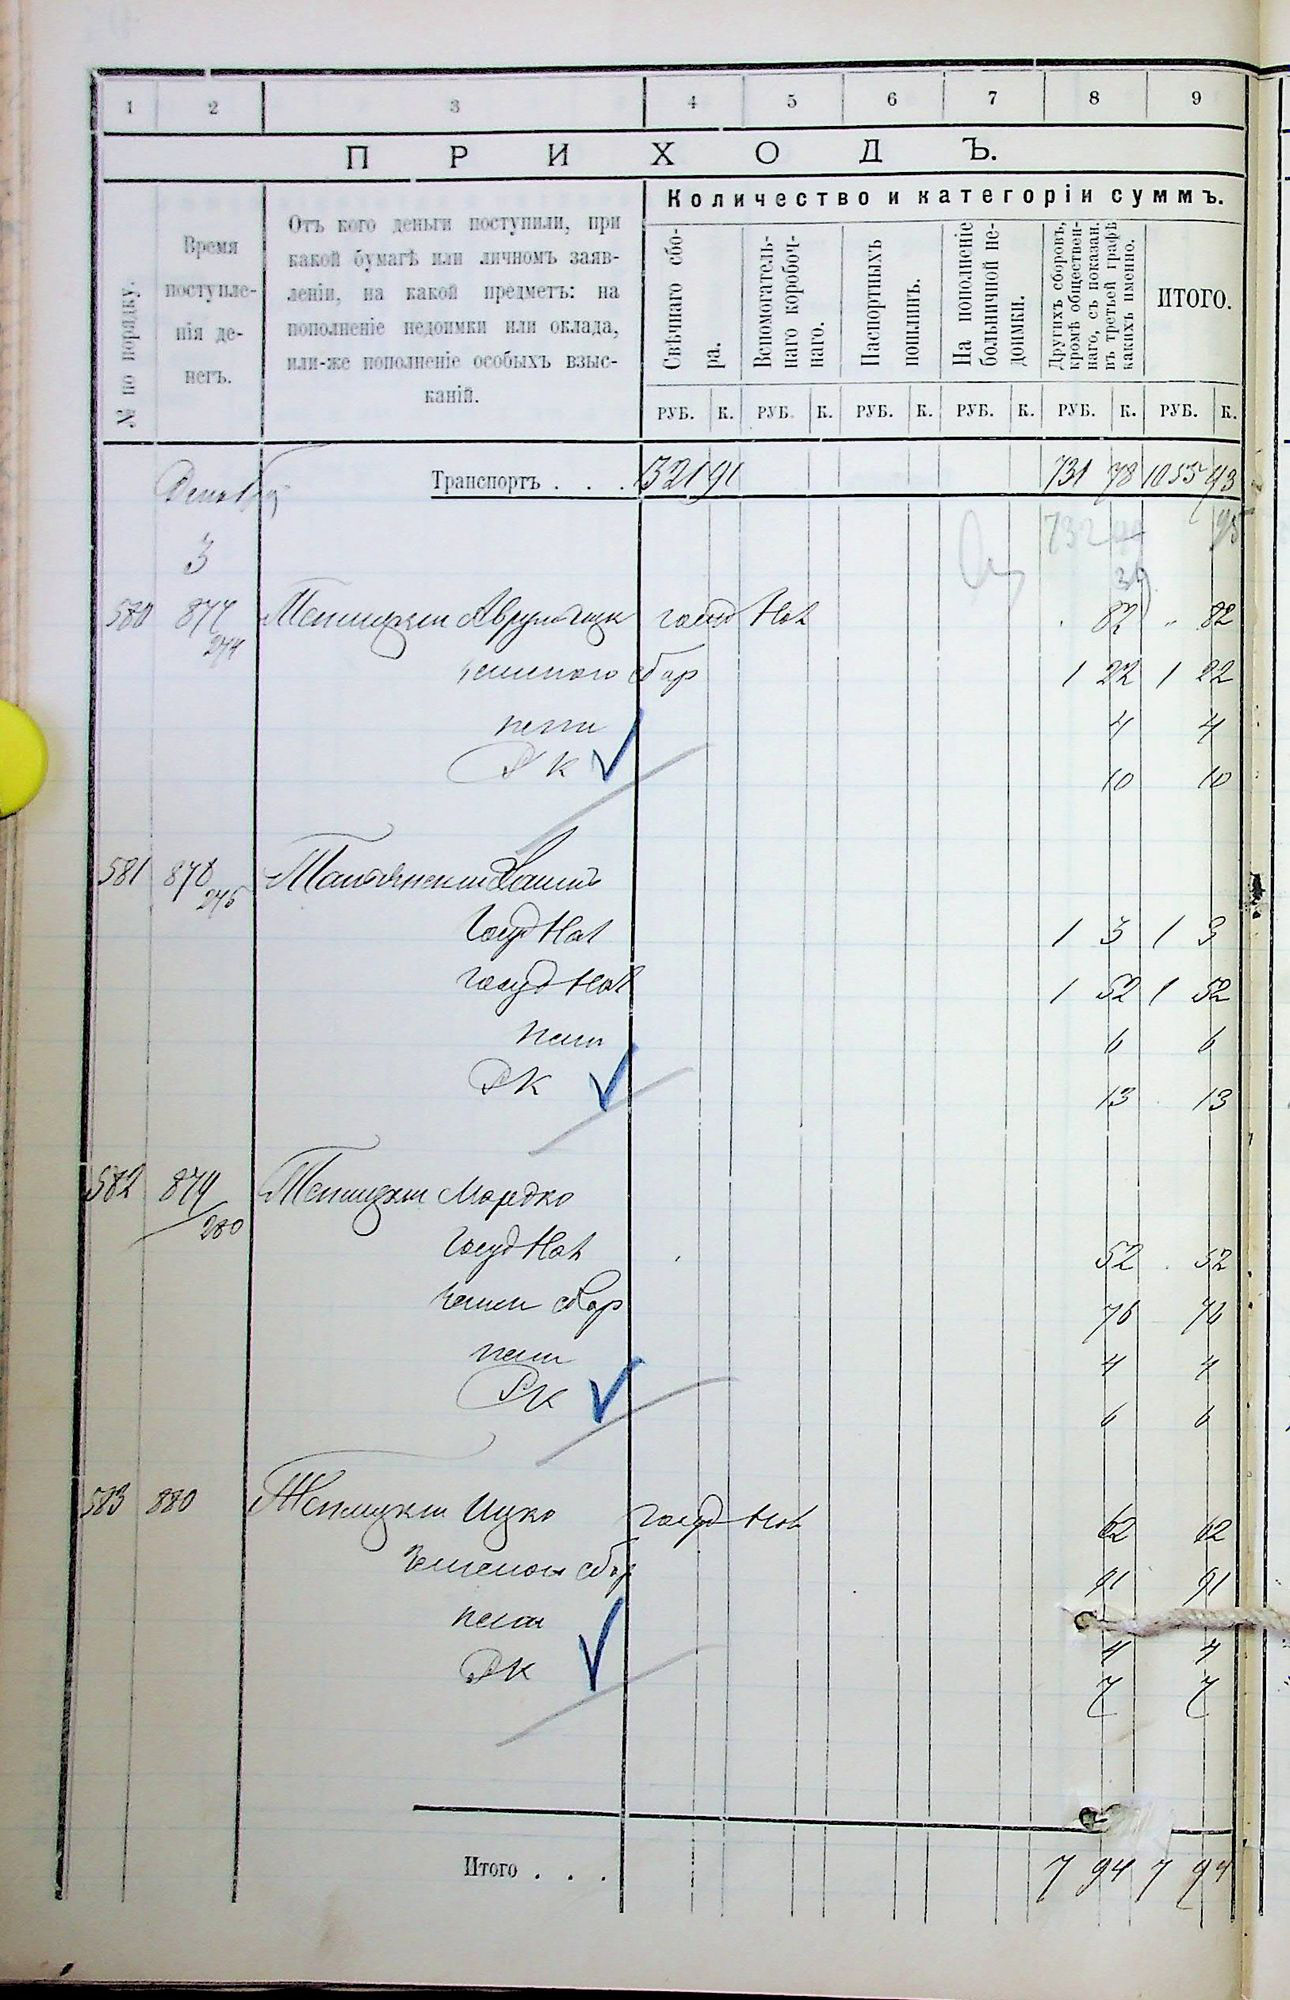 1 2 3 4 5 6 7 8 9
ПРИХОДЪ.
Количество и категоріи суммъ.
№ по порядку.
Время поступле-
нія де-
негъ.
Отъ кого деньги поступили, при
какой бумагѣ или личномъ заяв-
леніи, на какой предметъ: на
пополненіе недоимки или оклада,
или-же пополненіе особыхъ взыс-
каній.
Свѣчнаго сбо-
ра.
Вспомогатель-
наго коробоч-
наго.
Паспортныхъ
пошлинъ.
На пополненіе
больничной не-
доимки.
Другихъ сборовъ,
кромѣ обществен-
наго, съ показан.
въ третьей графѣ
какихъ именно.
ИТОГО.
РУБ. К. РУБ. К. РУБ. К. РУБ. К. РУБ. К. РУБ. К.
Транспортъ . . . 321 91 731 78 1055 93
Декабр
732
3
580 877 госуд Нал 82 82
сбор 1 22 1 22
пени 4 4
РК 10 10
581 878
Госуд Нал 1 3 1 3
госуд Нал 1 52 1 52
пени 6 6
РК 13 13
582 879 Теплицкий Мордко
280
Госуд Нал 52 52
земск сбор 76 76
пени 4 4
РК 6 6
583 880 Теплицкий Ицко госуд Нал 62 62
Земского сбор 91 91
пени 4 4
РК 7 7
Итого . . . 7 94 7 94